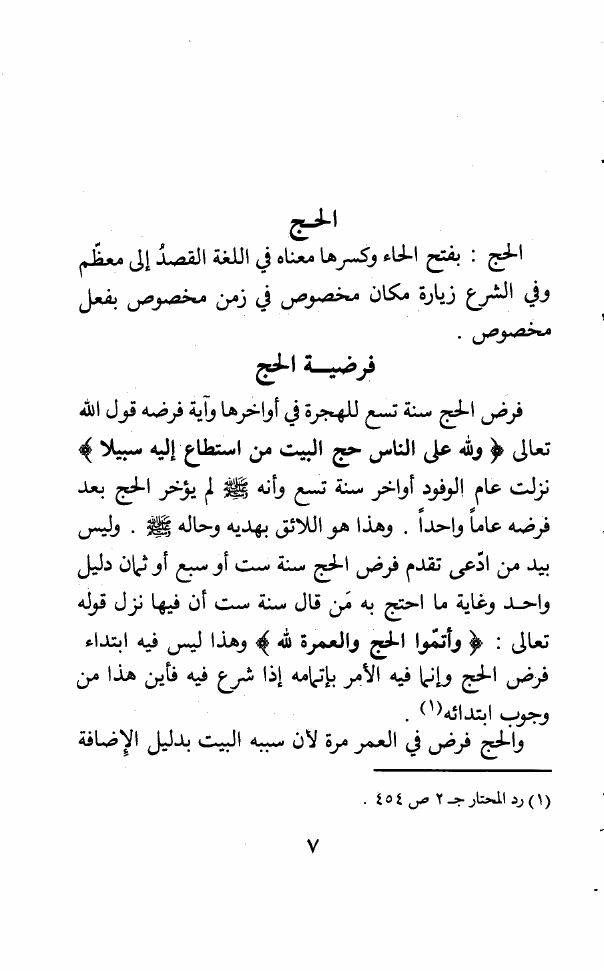 الحج
الحج : بفتح الحاء وكسرها معناه في اللغة القصدُ إلى معظّم
وفي الشرع زيارة مكان مخصوص في زمن مخصوص بفعل
مخصوص .
فرضية الحج
فرض الحج سنة تسع للهجرة في أواخرها وآية فرضه قول الله
تعالى ﴿ ولله على الناس حج البيت من استطاع إليه سبيلا ﴾
نزلت عام الوفود أواخر سنة تسع وأنه ﷺ لم يؤخر الحج بعد
فرضه عاماً واحداً . وهذا هو اللائق بهديه وحاله ﷺ . وليس
بيد من ادّعى تقدم فرض الحج سنة ست أو سبع أو ثمان دليل
واحد وغاية ما احتج به مَن قال سنة ست أن فيها نزل قوله
تعالى : ﴿ وأتمّوا الحج والعمرة لله ﴾ وهذا ليس فيه ابتداء
فرض الحج وإنما فيه الأمر بإتمامه إذا شرع فيه فأين هذا من
وجوب ابتدائه(١) .
والحج فرض في العمر مرة لأن سببه البيت بدليل الإضافة
(١) رد المحتار جـ ٢ ص ٤٥٤ .
٧